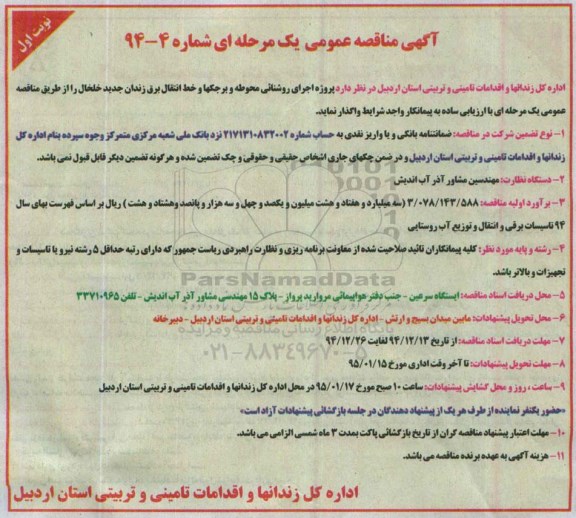 نوبت اول
آگهی مناقصه عمومی یک مرحله ای شماره ۴-۹۴
اداره کل زندانها و اقدامات تامینی و تربیتی استان اردبیل در نظر دارد پروژه اجرای روشنائی محوطه و برجکها و خط انتقال برق زندان جدید خلخال را از طریق مناقصه
عمومی یک مرحله ای با ارزیابی ساده به پیمانکار واجد شرایط واگذار نماید.
۱- نوع تضمین شرکت در مناقصه: ضمانتنامه بانکی و یا واریز نقدی به حساب شماره ۲۱۷۱۳۱۰۸۳۲۰۰۲ نزد بانک ملی شعبه مرکزی متمرکز وجوه سپرده بنام اداره کل
زندانها و اقدامات تامینی و تربیتی استان اردبیل و در ضمن چکهای جاری اشخاص حقیقی و حقوقی و چک تضمین شده و هرگونه تضمین دیگر قابل قبول نمی باشد.
۲- دستگاه نظارت: مهندسین مشاور آذر آب اندیش
۳- برآورد اولیه مناقصه: ۳/۰۷۸/۱۴۳/۵۸۸ (سه میلیارد و هفتاد و هشت میلیون و یکصد و چهل و سه هزار و پانصد وهشتاد و هشت) ریال بر اساس فهرست بهای سال
۹۴ تاسیسات برقی و انتقال و توزیع آب روستایی
۴- رشته و پایه مورد نظر: کلیه پیمانکاران تائید صلاحیت شده از معاونت برنامه ریزی و نظارت راهبردی ریاست جمهور که دارای رتبه حداقل ۵ رشته نیرو یا تاسیسات و
تجهیزات و بالاتر باشد.
۵- محل دریافت اسناد مناقصه: ایستگاه سرعین - جنب دفتر هواپیمائی مروارید پرواز - پلاک ۱۵ مهندسی مشاور آذر آب اندیش - تلفن ۳۳۷۱۰۹۶۵
۶- محل تحویل پیشنهادات: مابین میدان بسیج و ارتش - اداره کل زندانها و اقدامات تامینی و تربیتی استان اردبیل - دبیرخانه
۷- مهلت دریافت اسناد مناقصه: از تاریخ ۹۴/۱۲/۱۳ لغایت ۹۴/۱۲/۲۶
۸- مهلت تحویل پیشنهادات: تا آخر وقت اداری مورخ ۹۵/۰۱/۱۵
۹- ساعت، روز و محل گشایش پیشنهادات: ساعت ۱۰ صبح مورخ ۹۵/۰۱/۱۷ در محل اداره کل زندانها و اقدامات تامینی و تربیتی استان اردبیل
«حضور یکنفر نماینده از طرف هر یک از پیشنهاد دهندگان در جلسه بازگشائی پیشنهادات آزاد است»
۱۰- مهلت اعتبار پیشنهاد مناقصه گران از تاریخ بازگشائی پاکت بمدت ۳ ماه شمسی الزامی می باشد.
۱۱- هزینه آگهی به عهده برنده مناقصه می باشد.
اداره کل زندانها و اقدامات تامینی و تربیتی استان اردبیل
ParsNamadData
پایگاه اطلاع رسانی مناقصه و مزایده
۰۲۱-۸۸۳۴۹۶۷۰-۵